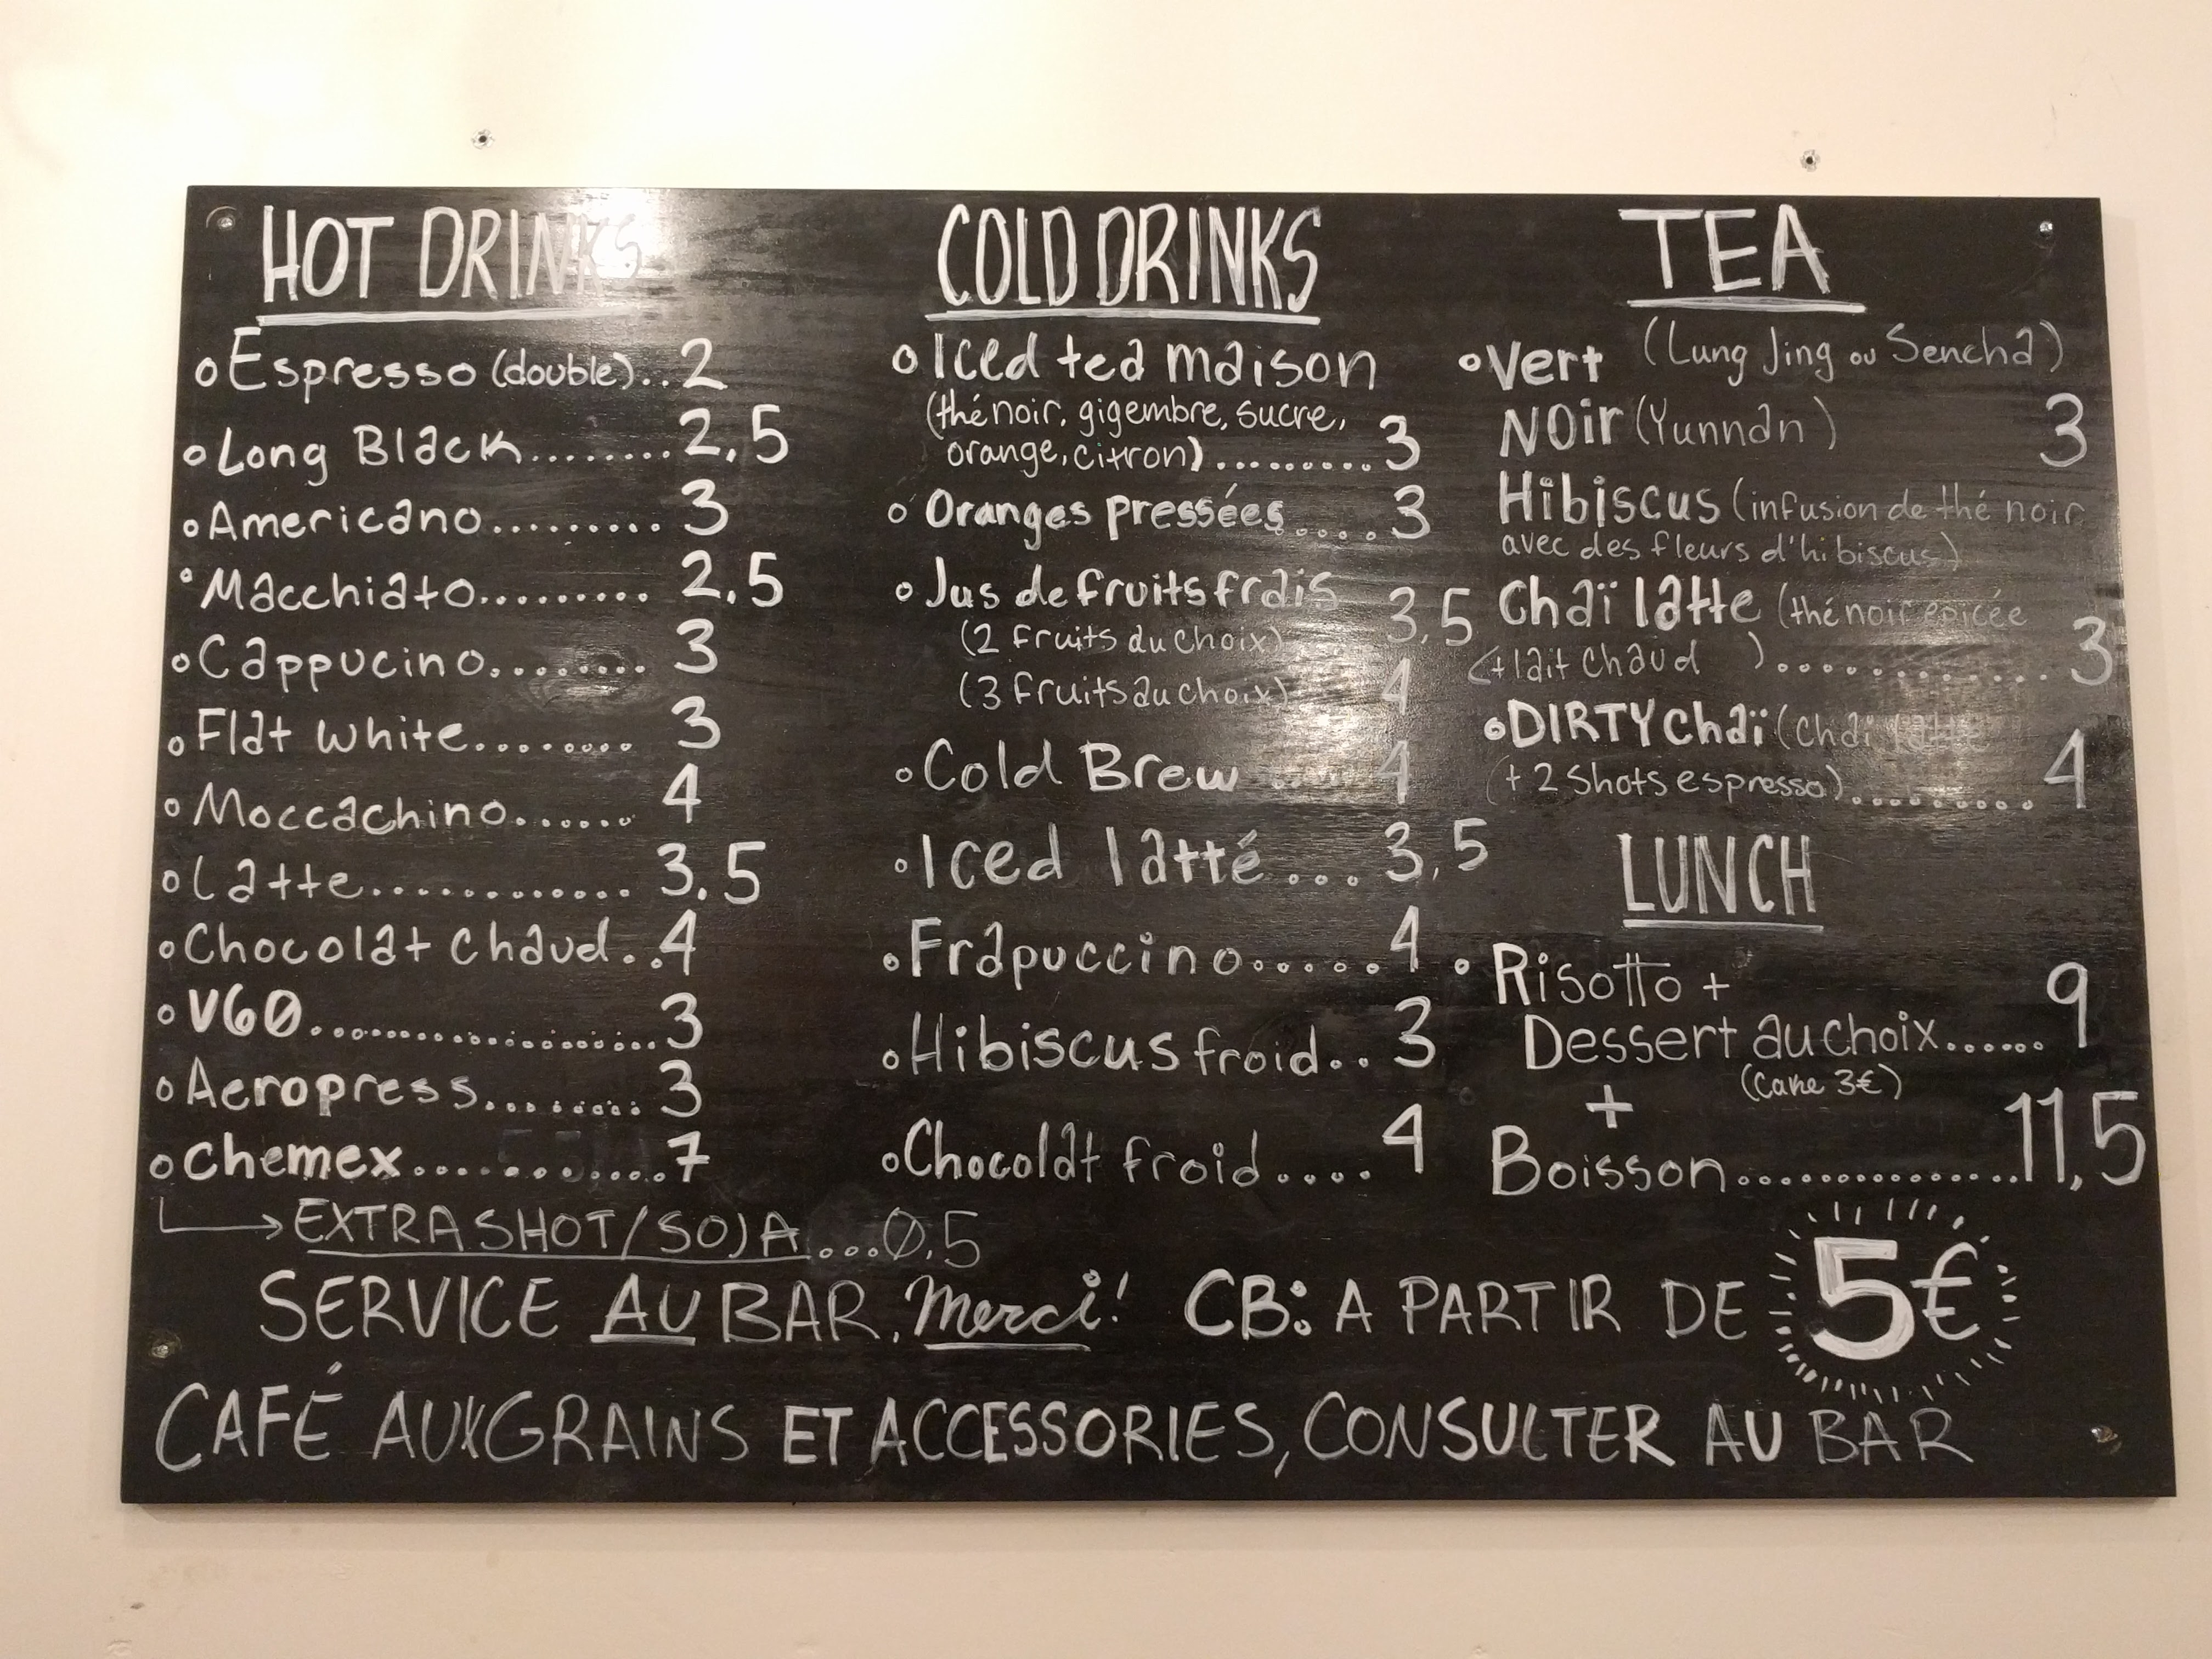 HOT DRINKS
Espresso (double)..2
Long Black........2,5
Americano.........3
Macchiato.........2,5
Cappucino........3
Flat white........3
Moccachino......4
Latte............3,5
Chocolat chaud..4
V60....................3
Aeropress.........3
Chemex............7
EXTRA SHOT/SOJA....0,5
COLD DRINKS
Iced tea maison
(thé noir, gigembre, sucre,
orange, citron).........3
Oranges pressées....3
Jus de fruits frais
(2 fruits du choix) 3,5
(3 fruits au choix) 4
Cold Brew ..... 4
Iced latté...3,5
Frapuccino.....4
Hibiscus froid..3
Chocolat froid....4
TEA
Vert (Lung Jing ou Sencha)
Noir (Yunnan) 3
Hibiscus (infusion de thé noir
avec des fleurs d'hibiscus)
Chaï latte (thé noir épicée
+ lait chaud )............3
DIRTY chaï (chaï latte
+ 2 shots espresso).........4
LUNCH
Risotto +
Dessert au choix......9
(Cake 3€)
+
Boisson................11,5
SERVICE AU BAR. Merci! CB: A PARTIR DE 5€
CAFÉ AUX GRAINS ET ACCESSORIES, CONSULTER AU BAR